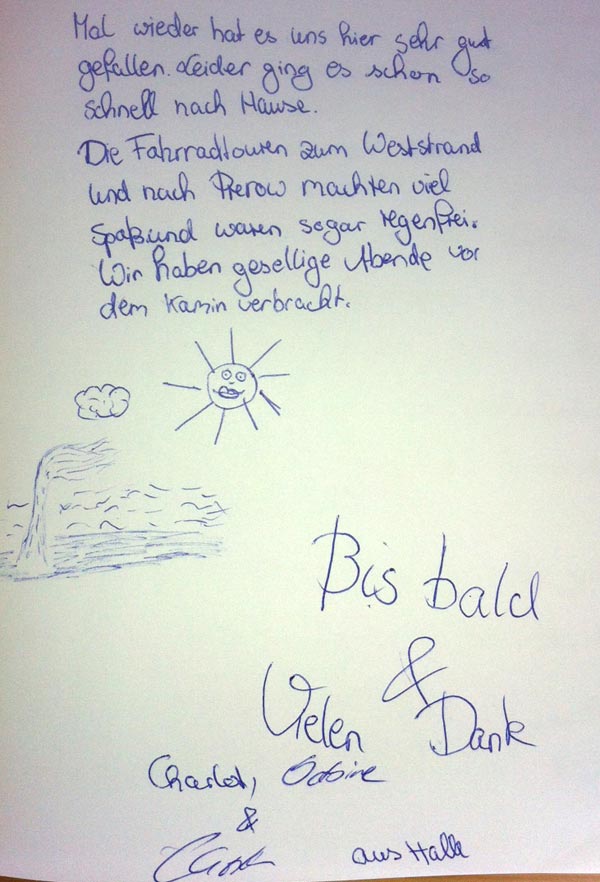 Mal wieder hat es uns hier sehr gut
gefallen. Leider ging es schon so
schnell nach Hause.
Die Fahrradtouren zum Weststrand
und nach Prerow machten viel
Spaß und waren sogar regenfrei.
Wir haben gesellige Abende vor
dem Kamin verbracht.
Bis bald
&
Vielen Dank
Charlot,
&
aus Halle